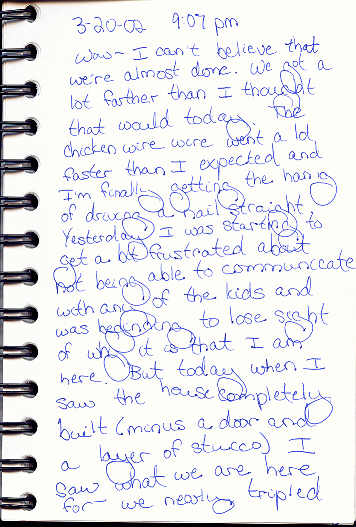 3-20-02 9:07 pm
Wow- I can't believe that
we're almost done. We got a
lot farther than I thought
that would today. The
chicken wire wire went a lot
faster than I expected and
I'm finally getting the hang
of driving a nail straight.
Yesterday I was starting to
get a bit frustrated about
not being able to communicate
with any of the kids and
was beginning to lose sight
of why it is that I am
here. But today when I
saw the house completely
built (minus a door and
a layer of stucco) I
saw what we are here
for- we nearly tripled